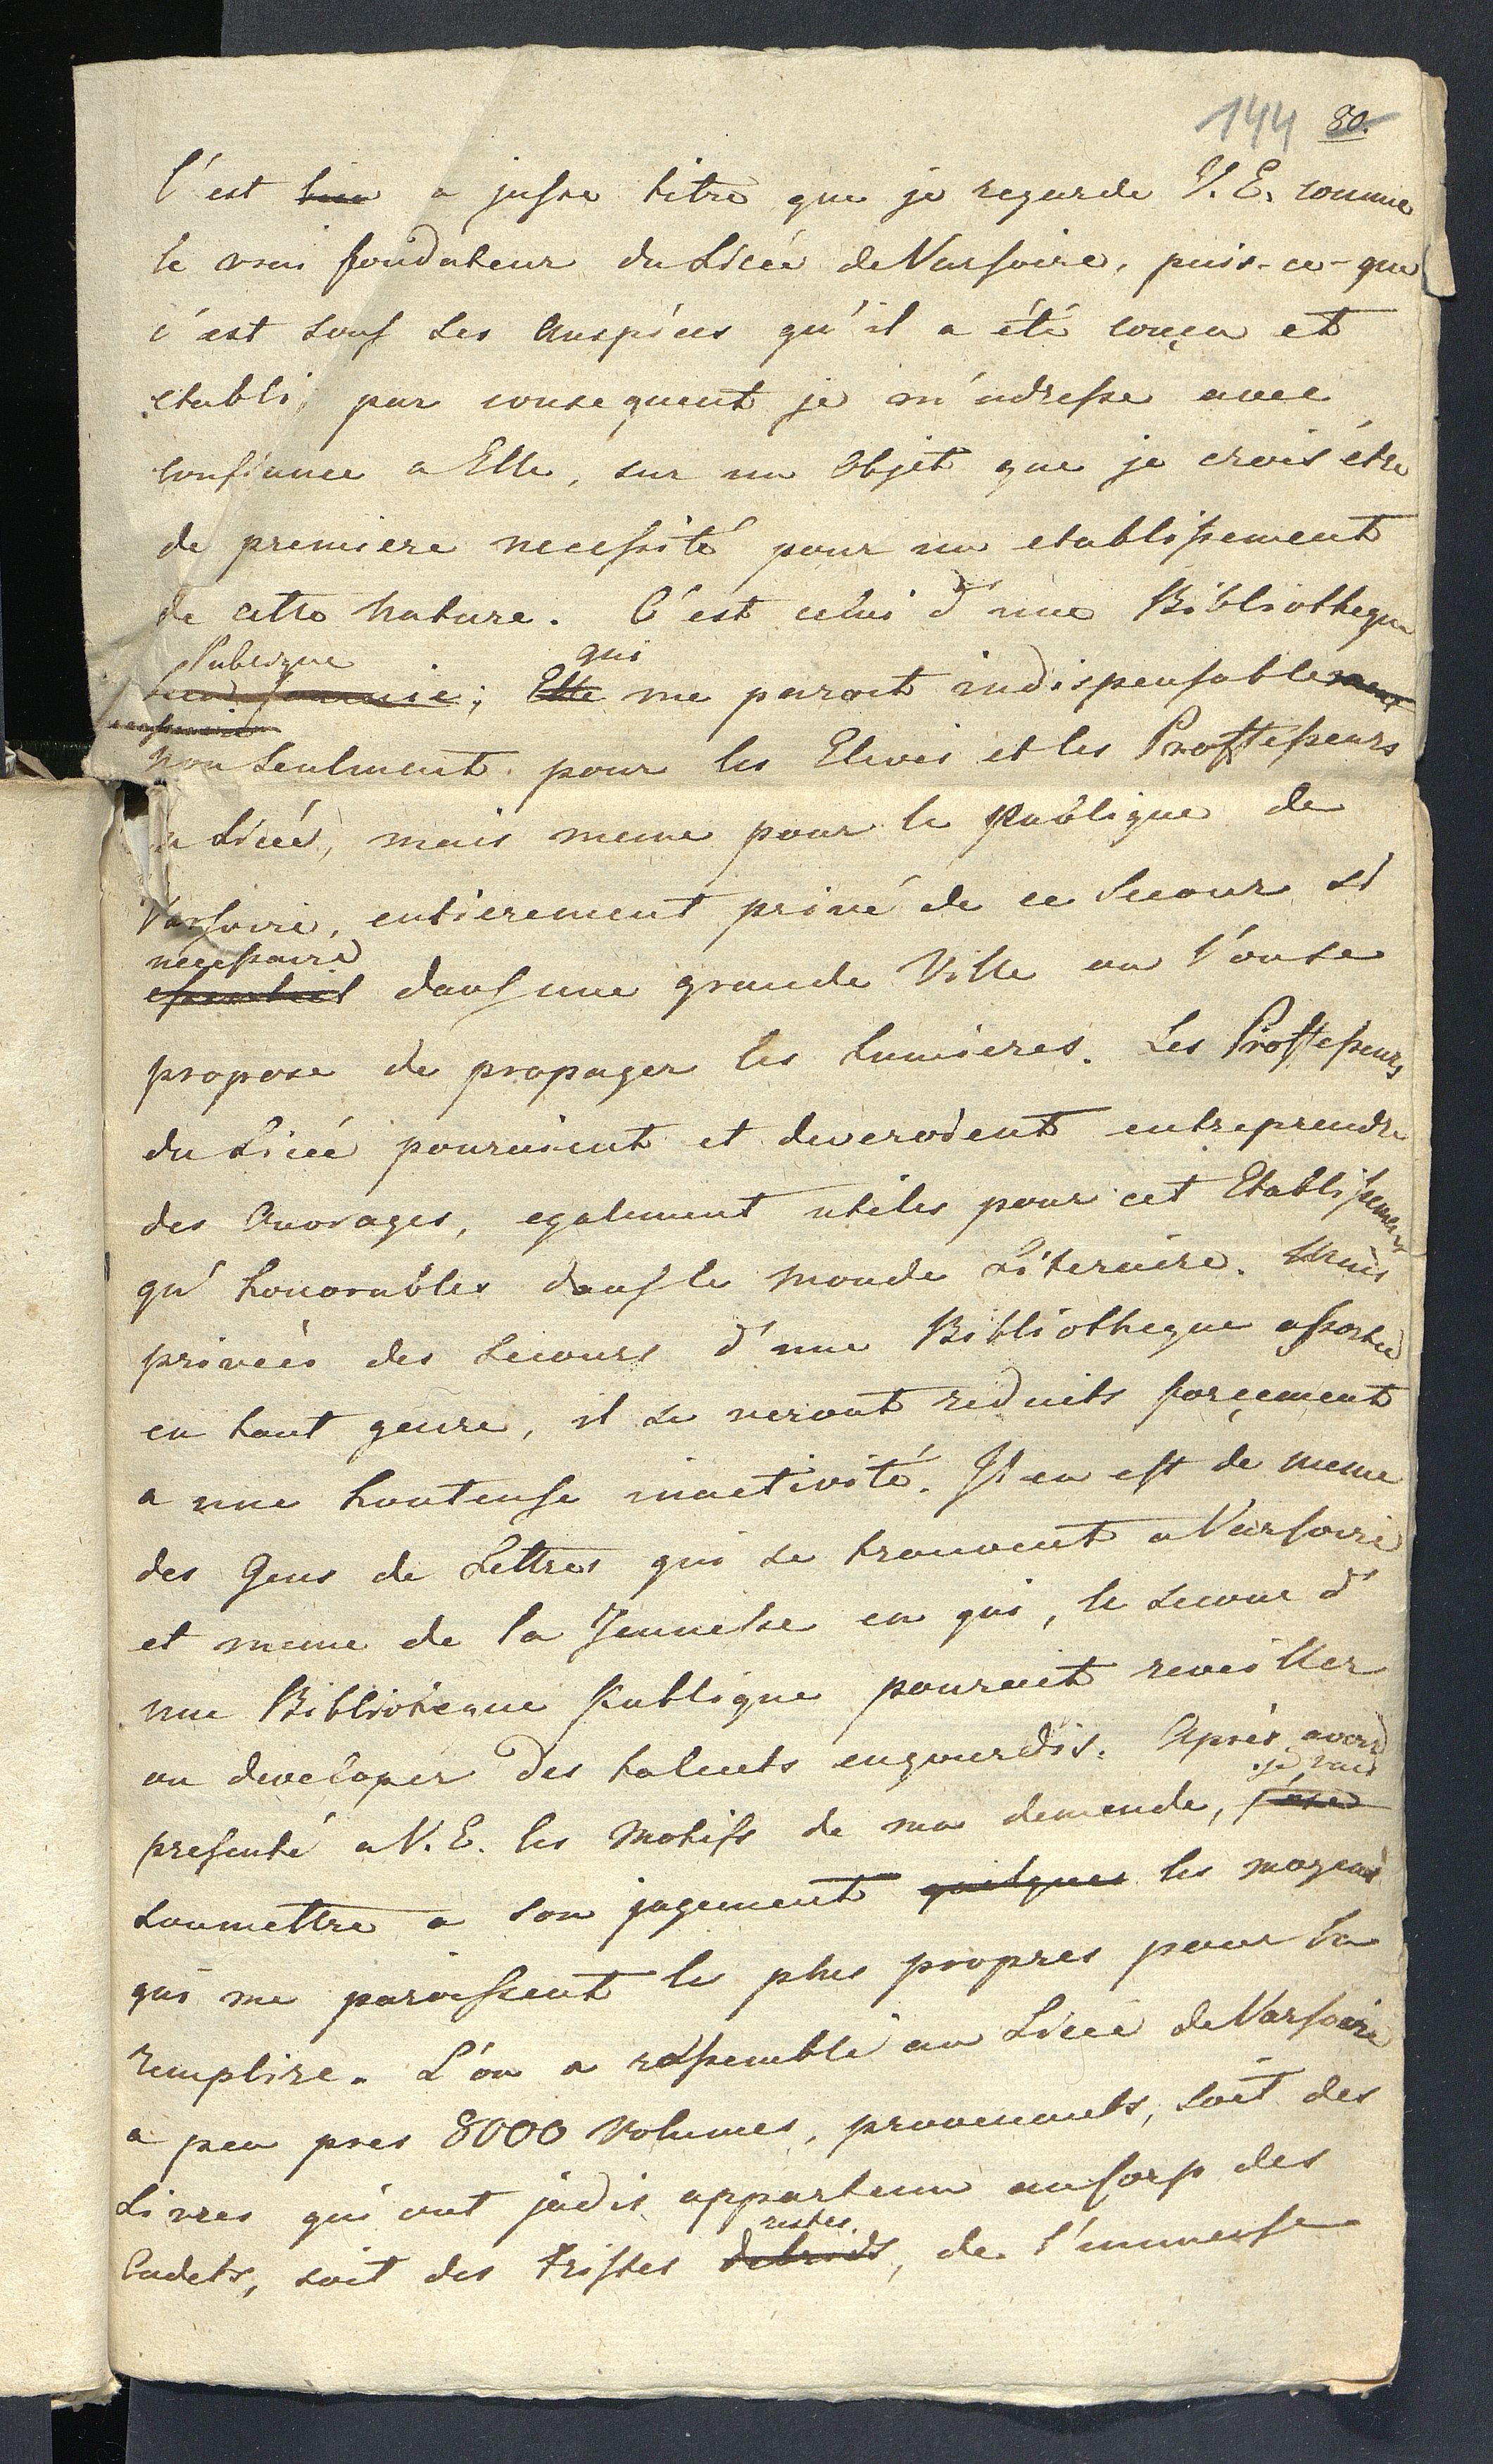 144 80.
C'est bien a juste titre que je regarde V. E. comme
le vrai fondateur du Licée de Varsovie, puis-ce-que
c'est sous ses Auspices qu'il a été conçu et
etabli, par consequent je m'adresse avec
confiance a Elle, sur un Objet que je crois étre
de premiere necessité pour un etablissement
de cette Nature. C'est celui d'une Bibliotheque
Publique qui
; Elle me paroit indispensablement
non seulment pour les Eleves et les Proffesseurs
du Licée, mais meme pour le Publique de
Varsovie, entierement privé de ce Secour si
necessaire
essentiel dans une grande Ville ou l'on se
propose de propager les lumieres. Les Proffesseurs
du Licée pouroient et deveroient entreprendre
des Ouvrages, egalement utiles pour cet Etablissement
qu'honorables dans le Monde Literaire. Mais
privées des Secours d'une Bibliotheque assortie
en tout genre, il se veront reduits forçement
a une honteuse inactivité. Il en est de meme
des Gens de Lettres qui se trouvent a Varsovie
et meme de la Jeunesse en qui, le secour d'
une Bibliotheque Publique pouroit reveiller
ou developer des talents engourdis. Après avoir
je vais
presenté a V. E. les Motifs de ma demande, j'ose
soumettre a son jugement quelques les moyens
qui me paroissent les plus propres pour la
remplire. L'on a rassemblé au Licée de Varsovie
a peu pres 8000 Volumes, provenants, soit des
Livres qui ont jadis appartenu au Corps des
restes
Cadets, soit des tristes debrids, de l'immense